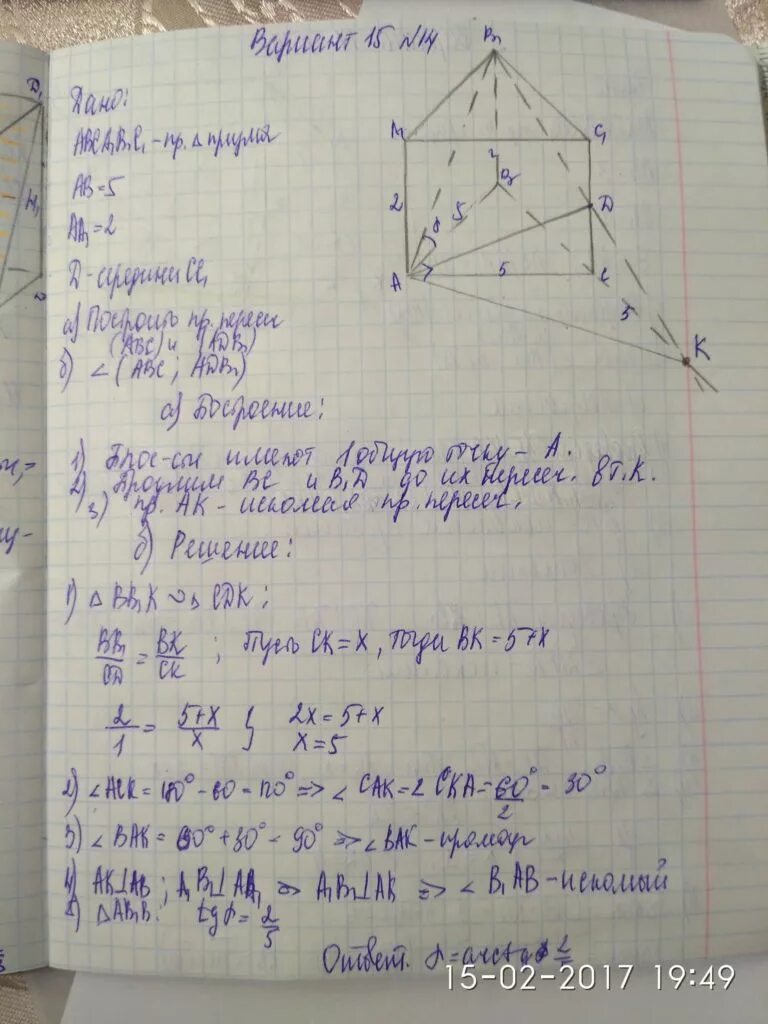 Вариант 15 №14
Дано:
ABCA₁B₁C₁ - пр. Δ призма
AB = 5
AA₁ = 2
D - середина CC₁
а) Построить пр. перес
(ABC) и (ADB₁)
б) ∠(ABC; ADB₁)
B₁
C₁
2
2
B
5
D
A
5
C
5
K
D₁
а) Построение:
1) имеют 1 общую точку - A.
2) Продлим BC и B₁D до их перес. в т. K.
3) пр. AK - искомая пр. перес.
б) Решение:
1) Δ BB₁K ∾ Δ CDK;
BB₁/CD = BK/CK ; Пусть CK = x, тогда BK = 5+x
2/1 = (5+x)/x } 2x = 5+x
x = 5
2) ∠ACK = 180° - 60 = 120° => ∠CAK = ∠CKA = 60°/2 = 30°
3) ∠BAK = 60° + 30° = 90° => ∠BAK - прямоуг
4) AK⊥AB; A₁B₁⊥AA₁ => A₁B₁⊥AK => ∠B₁AB - искомый
ΔAB₁B: tg = 2/5
Ответ.
15-02-2017 19:49